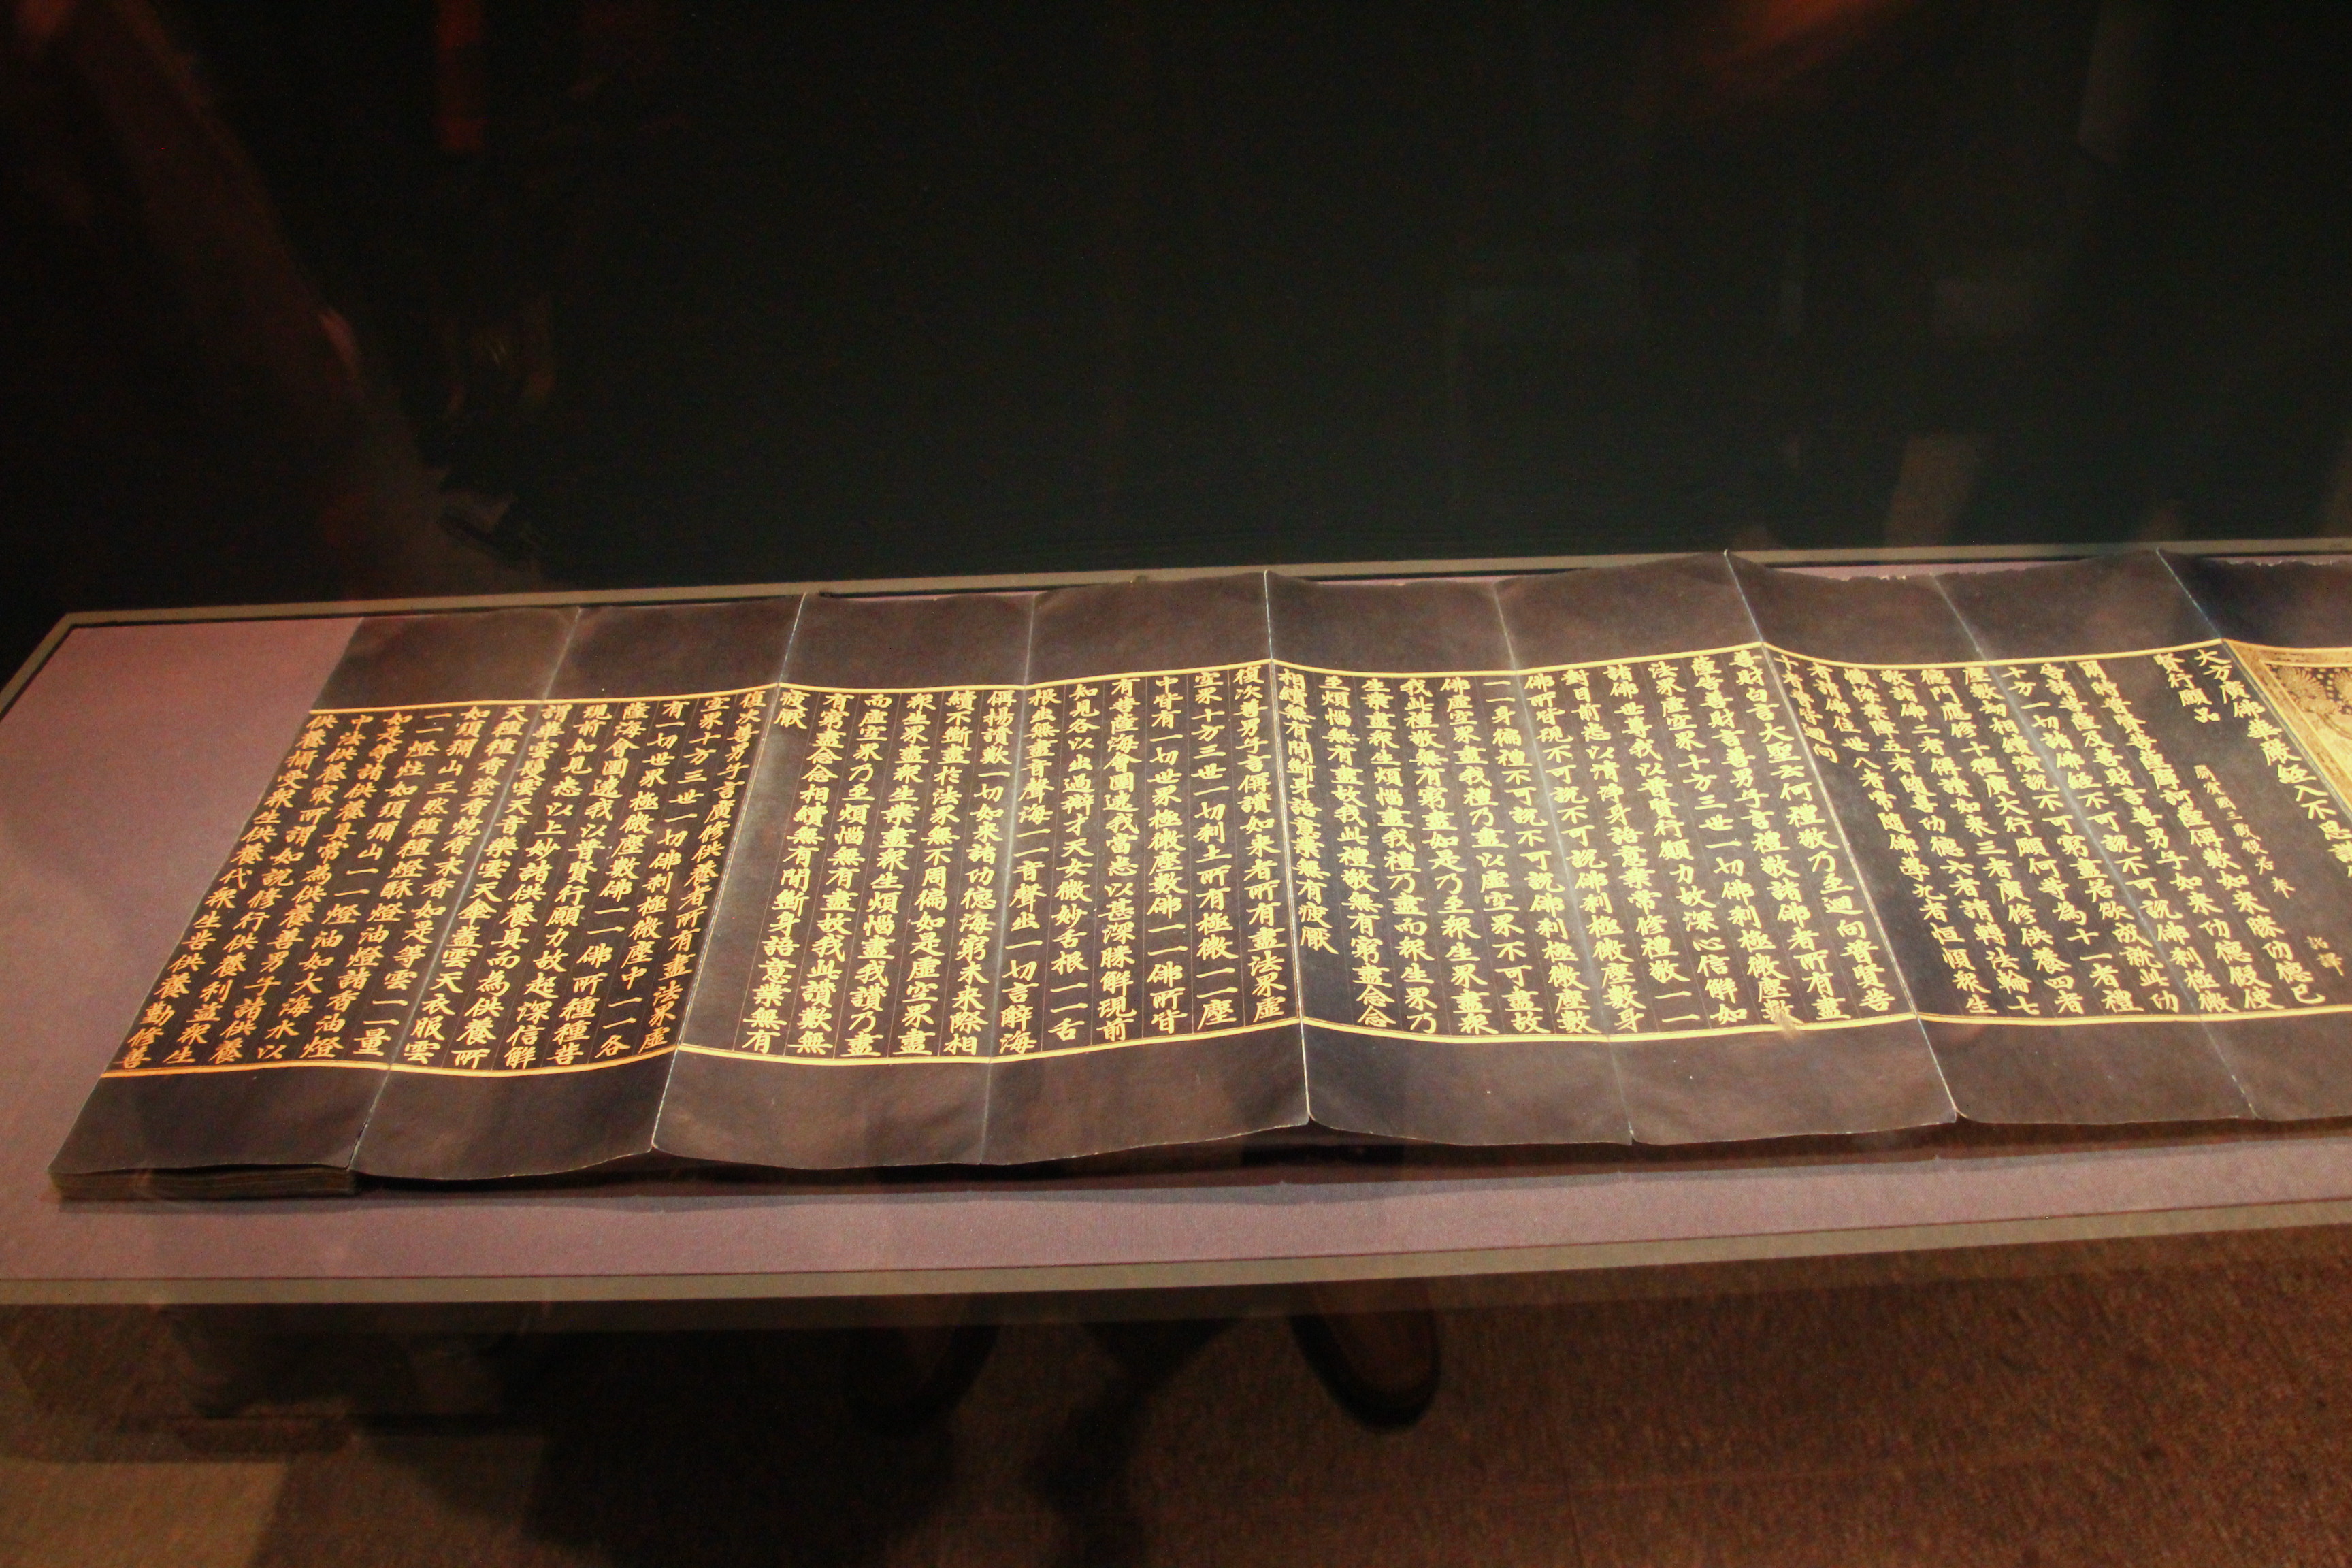 大方廣佛華嚴經入不思議
賢行願品
罽賓國三藏般若奉
詔譯
爾時普賢菩薩摩訶薩稱歎如來勝功德已
告諸菩薩及善財言善男子如來功德假使
十方一切諸佛經不可說不可說佛刹極微
塵數劫相續演說不可窮盡若欲成就此功
德門應修十種廣大行願何等為十一者禮
敬諸佛二者稱讚如來三者廣修供養四者
懺悔業障五者隨喜功德六者請轉法輪七
者請佛住世八者常隨佛學九者恒順衆生
十者普皆迴向
善財白言大聖云何禮敬乃至迴向普賢菩
薩告善財言善男子言禮敬諸佛者所有盡
法界虛空界十方三世一切佛刹極微塵數
諸佛世尊我以普賢行願力故深心信解如
對目前悉以清淨身語意業常修禮敬一一
佛所皆現不可說不可說佛刹極微塵數身
一一身徧禮不可說不可說佛刹極微塵數
佛虛空界盡我禮乃盡以虛空界不可盡故
我此禮敬無有窮盡如是乃至衆生界盡衆
生業盡衆生煩惱盡我禮乃盡而衆生界乃
至煩惱無有盡故我此禮敬無有窮盡念念
相續無有間斷身語意業無有疲厭
復次善男子言稱讚如來者所有盡法界虛
空界十方三世一切刹土所有極微一一塵
中皆有一切世界極微塵數佛一一佛所皆
有菩薩海會圍遶我當悉以甚深勝解現前
知見各以出過辯才天女微妙舌根一一舌
根出無盡音聲海一一音聲出一切言辭海
稱揚讚歎一切如來諸功德海窮未來際相
續不斷盡於法界無不周徧如是虛空界盡
衆生界盡衆生業盡衆生煩惱盡我讚乃盡
而虛空界乃至煩惱無有盡故我此讚歎無
有窮盡念念相續無有間斷身語意業無有
疲厭
復次善男子言廣修供養者所有盡法界虛
空界十方三世一切佛刹極微塵中一一各
有一切世界極微塵數佛一一佛所種種菩
薩海會圍遶我以普賢行願力故起深信解
現前知見悉以上妙諸供養具而為供養所
謂華雲鬘雲天音樂雲天傘蓋雲天衣服雲
天種種香塗香燒香末香如是等雲一一量
如須彌山王然種種燈酥燈油燈諸香油燈
一一燈炷如須彌山一一燈油如大海水以
如是等諸供養具常為供養善男子諸供養
中法供養最所謂如說修行供養利益衆生
供養攝受衆生供養代衆生苦供養勤修善